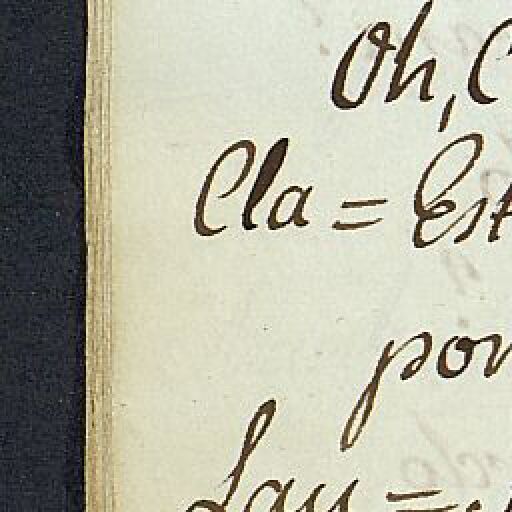 Oh, C
Cla = Est
por
Lau =